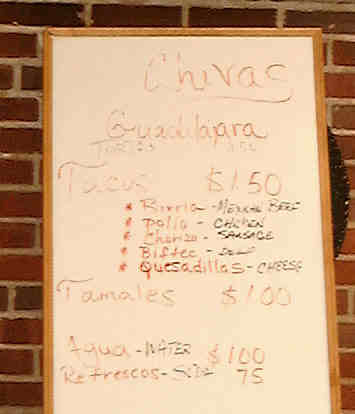 Chivas
Guadalajara
Tacos $1.50
* Birria - MEXICAN BEEF
* Pollo - CHICKEN
* Chorizo - SAUSAGE
* Biftec - BEEF
* Quesadillas - CHEESE
Tamales $1.00
Agua - WATER $1.00
Refrescos - SODA 75